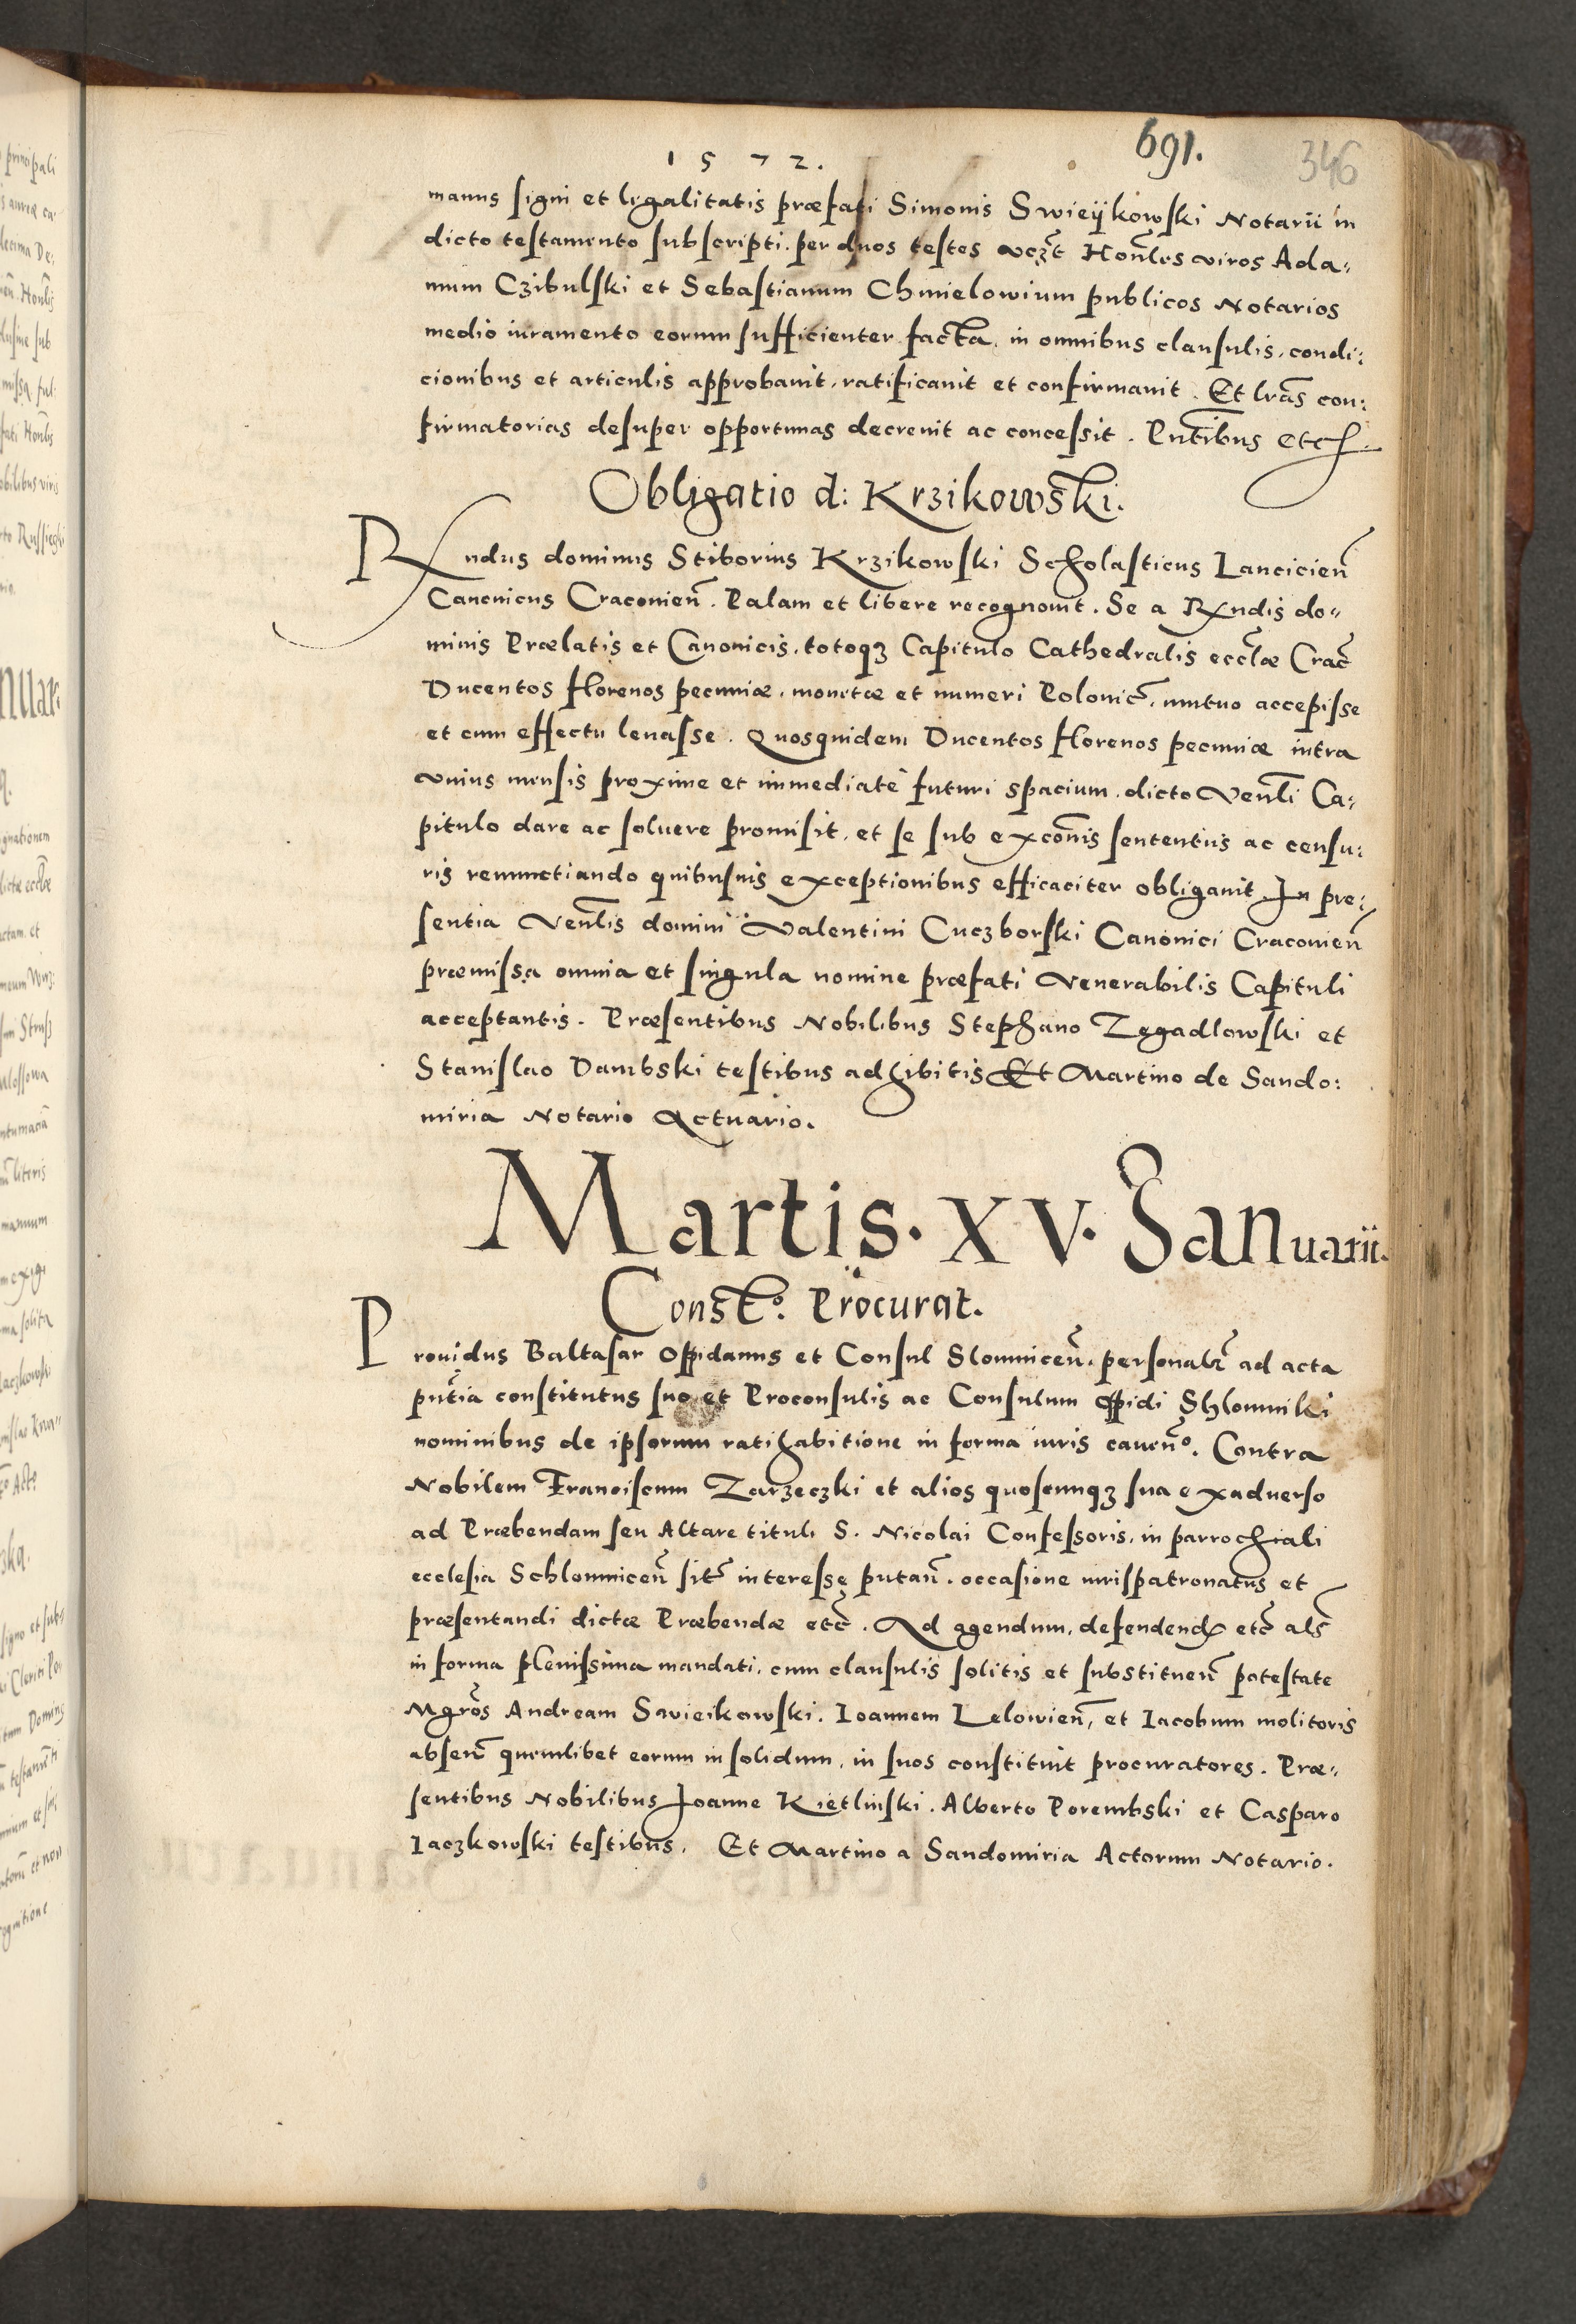 1572.
691.
346
manus signi et legalitatis præfati Simonis Swieÿkowski Notarii in
dicto testamento subscripti. per duos testes vczt̃ Hon̄les viros Ada„
mum Czibulski et Sebastianum Chmielowium publicos Notarios
medio iuramento eorum sufficienter facta. in omnibus clausulis, condi:
cionibus et articulis approbauit, ratificauit et confirmauit. Et lrās con:
firmatorias desuper opportunas decreuit ac concessit. Pn̄tibus etc
Obligatio d: Krzikowski.
Rndus dominus Stiborius Krzikowski Scholasticus Lancicien̄
Canonicus Craconien̄. Palam et libere recognouit. Se a Rndis do„
minis Prælatis et Canonicis, totoqȝ Capitulo Cathedralis ecclæ̃ Crac̃
Ducentos florenos pecuniæ, monetæ et numeri Polonic̃, mutuo accepisse
et cum effectu leuasse. Quosquidem Ducentos florenos pecuniæ intra
vnius mensis proxime et immediatè futuri spacium, dicto Ven̄li Ca„
pitulo dare ac soluere promisit, et se sub excōnis sententiis ac censu:
ris renunctiando quibusuis exceptionibus efficaciter obligauit In pre„
sentia Ven̄lis domini Valentini Cuczborski Canonici Craconien̄
præmissa omnia et singula nomine præfati Venerabilis Capituli
acceptantis. Præsentibus Nobilibus Stephano Zegadlowski et
Stanislao Dambski testibus adhibitis Et Martino de Sando:
miria Notario Actuario.
Martis. XV. Januarii.
Constõ. Procurat.
Prouidus Baltasar Oppidanus et Consul Slomnicen̄. personalr̃ ad acta
pn̄tia constitutus suo et Proconsulis ac Consulum oppidi Shlomniki
nominibus de ipsorum ratihabitione in forma iuris cauen̄º. Contra
Nobilem Franciscum Zarzeczki et alios quoscunqȝ sua exaduerso
ad Præbendam seu Altare tituli S. Nicolai Confessoris, in parrochiali
ecclesia Schlomnicen̄ sit̃ interesse putan̄. occasione iurispatronatus et
præsentandi dictæ Præbendæ etc̃. Ad agendum, defendend etc̃ als̃
in forma plenissima mandati, cum clausulis solitis et substituen̄ potestate
Mgrōs Andream Swieikowski. Ioannem Lelowien̄, et Iacobum molitoris
absen̄ quemlibet eorum in solidum, in suos constituit procuratores. Præ„
sentibus Nobilibus Joanne Kietlinski. Alberto Porembski et Casparo
Iaczkowski testibus, Et Martino a Sandomiria Actorum Notario.